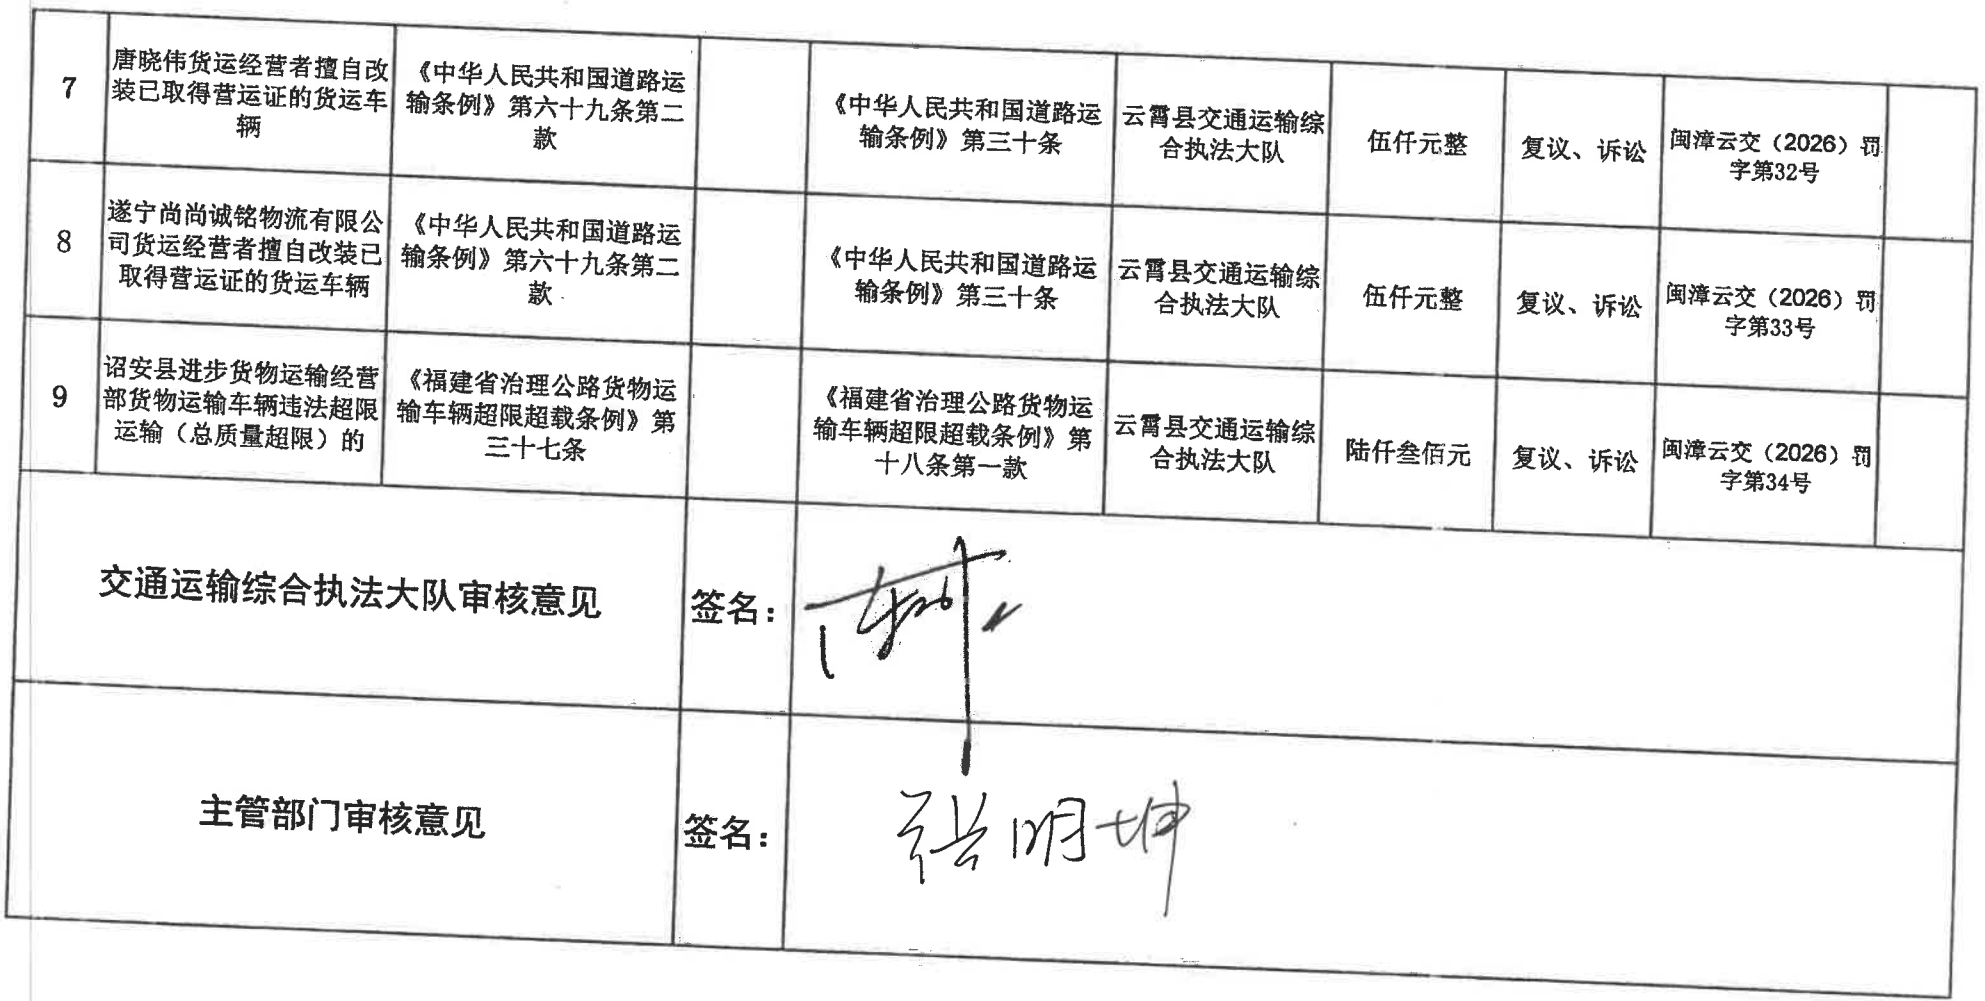 7
唐晓伟货运经营者擅自改
装已取得营运证的货运车
辆
《中华人民共和国道路运
输条例》第六十九条第二
款
《中华人民共和国道路运
输条例》第三十条
云霄县交通运输综
合执法大队
伍仟元整
复议、诉讼
闽漳云交（2026）罚
字第32号
8
遂宁尚尚诚铭物流有限公
司货运经营者擅自改装已
取得营运证的货运车辆
《中华人民共和国道路运
输条例》第六十九条第二
款
《中华人民共和国道路运
输条例》第三十条
云霄县交通运输综
合执法大队
伍仟元整
复议、诉讼
闽漳云交（2026）罚
字第33号
9
诏安县进步货物运输经营
部货物运输车辆违法超限
运输（总质量超限）的
《福建省治理公路货物运
输车辆超限超载条例》第
三十七条
《福建省治理公路货物运
输车辆超限超载条例》第
十八条第一款
云霄县交通运输综
合执法大队
陆仟叁佰元
复议、诉讼
闽漳云交（2026）罚
字第34号
交通运输综合执法大队审核意见
签名：
主管部门审核意见
签名：
张明坤